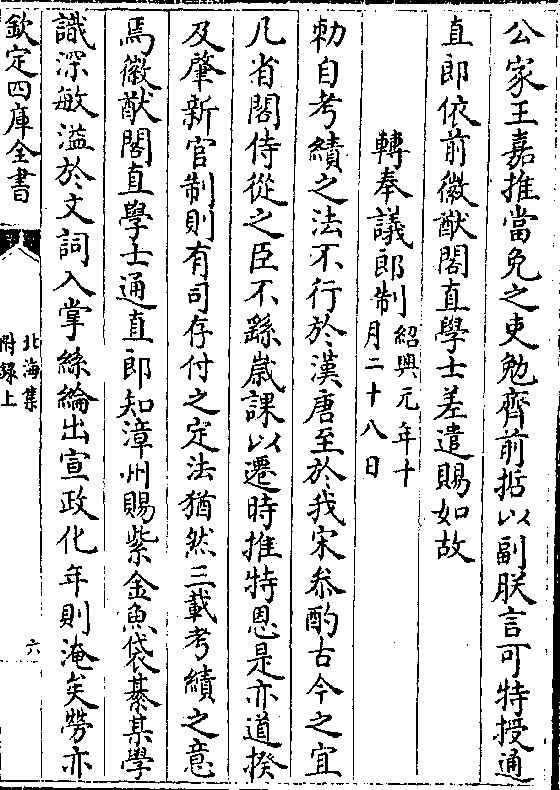 公家王嘉推當免之吏勉齊前括以副朕言可特授通
直郎依前徽猷閣直學士差遣賜如故
轉奉議郎制紹興元年十月二十八日
勑自考績之法不行於漢唐至於我宋叅酌古今之宜
凡省閣侍從之臣不繇嵗課以遷時推特恩是亦道揆
及肇新官制則有司存付之定法猶然三載考績之意
焉徽猷閣直學士通直郎知漳州賜紫金魚袋綦某學
識深敏溢於文詞入掌絲綸出宣政化年則淹矣勞亦
欽定四庫全書
北海集
附録上
六